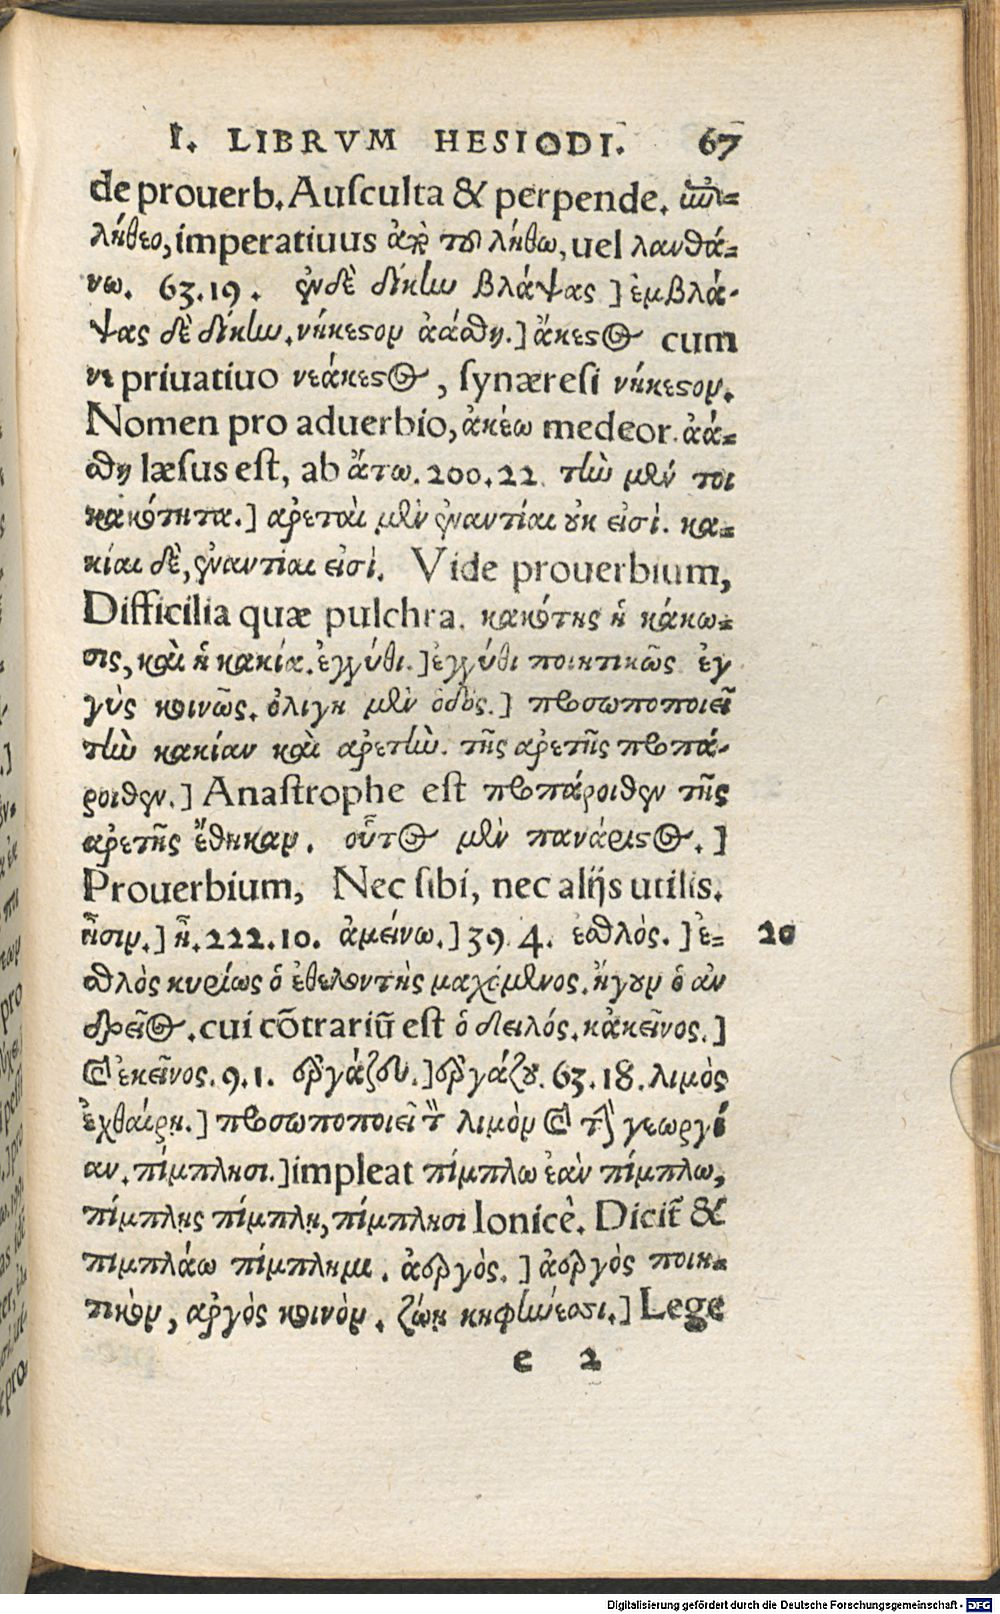 I. LIBRVM HESIODI. 67
de prouerb. Ausculta & perpende. ἐπι-
λήθεο, imperatiuus ἀπὸ τοῦ λήθω, uel λανθά-
νω. 63.19. ἐν δὲ δίκην βλάψας ] ἐμβλά-
ψας δὲ δίκην. νήκεστον ἀάσθη.] ἄκεστος cum
νε priuatiuo νεάκεστος, synæresi νήκεστον.
Nomen pro aduerbio, ἀκέω medeor. ἀά-
σθη læsus est, ab ἄτω. 200.22. τὴν μέν τοι
κακότητα.] αἱ ἀρεταὶ μὲν ἐναντίαι οὐκ εἰσὶ. κα-
κίαι δὲ, ἐναντίαι εἰσί. Vide prouerbium,
Difficilia quæ pulchra. κακότης ἡ κάκω-
σις, καὶ ἡ κακία. ἐγγύθι.] ἐγγύθι ποιητικῶς ἐγ
γὺς κοινῶς. ὀλίγη μὲν ὁδός.] προσωποποιεῖ
τὴν κακίαν καὶ ἀρετὴν. τῆς ἀρετῆς προπά-
ροιθεν.] Anastrophe est προπάροιθεν τῆς
ἀρετῆς ἔθηκαν. οὗτος μὲν πανάριστος.]
Prouerbium, Nec sibi, nec alijs utilis.
ᾖσιν.] ᾖ. 222.10. ἀμείνω.] 39.4. ἐσθλὸς.] ἐ- 20
σθλὸς κυρίως ὁ ἐθελοντὴς μαχόμενος. ἤγουν ὁ ἀν
δρεῖος. cui cõtrariũ est ὁ δειλός. κἀκεῖνος.]
καὶ ἐκεῖνος. 9.1. ἐργάζευ.] ἐργάζου. 63.18. λιμὸς
ἐχθαίρῃ.] προσωποποιεῖ τὸν λιμὸν καὶ τὴν γεωργί
αν. πίμπλησι.] impleat πίμπλω ἐὰν πίμπλω,
πίμπλῃς πίμπλῃ, πίμπλησι Ionicè. Dicit̃ &
πιμπλάω πίμπλημι. ἀεργὸς.] ἀεργὸς ποιη-
τικὸν, ἀργὸς κοινὸν. ζώῃ κηφήνεσσι.] Lege
e 2